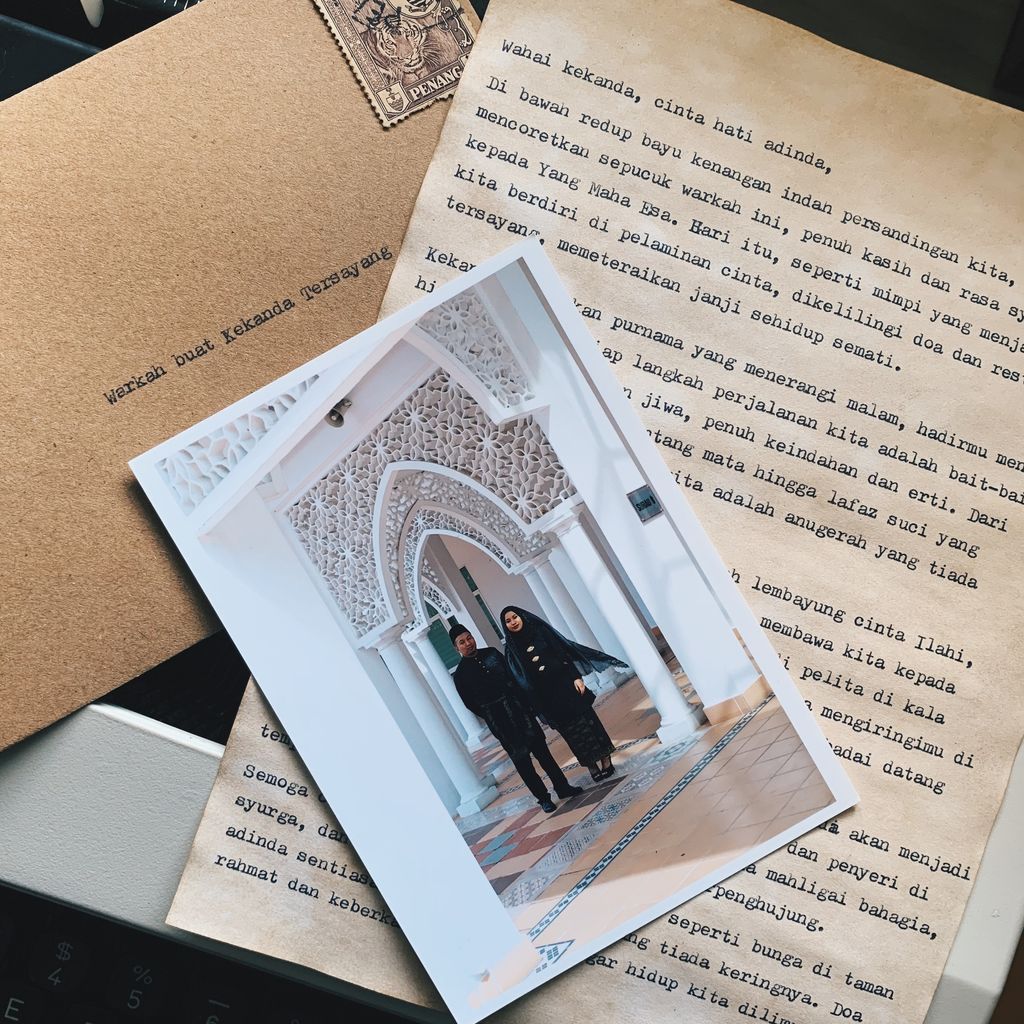 PENANG
Warkah buat Kekanda Tersayang
Wahai kekanda, cinta hati adinda,
Di bawah redup bayu kenangan indah persandingan kita,
mencoretkan sepucuk warkah ini, penuh kasih dan rasa sy
kepada Yang Maha Esa. Hari itu, seperti mimpi yang menja
kita berdiri di pelaminan cinta, dikelilingi doa dan rest
tersayang, memeteraikan janji sehidup semati.
kan purnama yang menerangi malam, hadirmu men
ap langkah perjalanan kita adalah bait-bai
jiwa, penuh keindahan dan erti. Dari
tang mata hingga lafaz suci yang
ita adalah anugerah yang tiada
h lembayung cinta Ilahi,
membawa kita kepada
i pelita di kala
mengiringimu di
badai datang
Semoga
akan menjadi
syurga, dan
dan penyeri di
adinda sentias
mahligai bahagia,
rahmat dan keberk
penghujung.
seperti bunga di taman
ng tiada keringnya. Doa
gar hidup kita
$
4
%
5
6
E